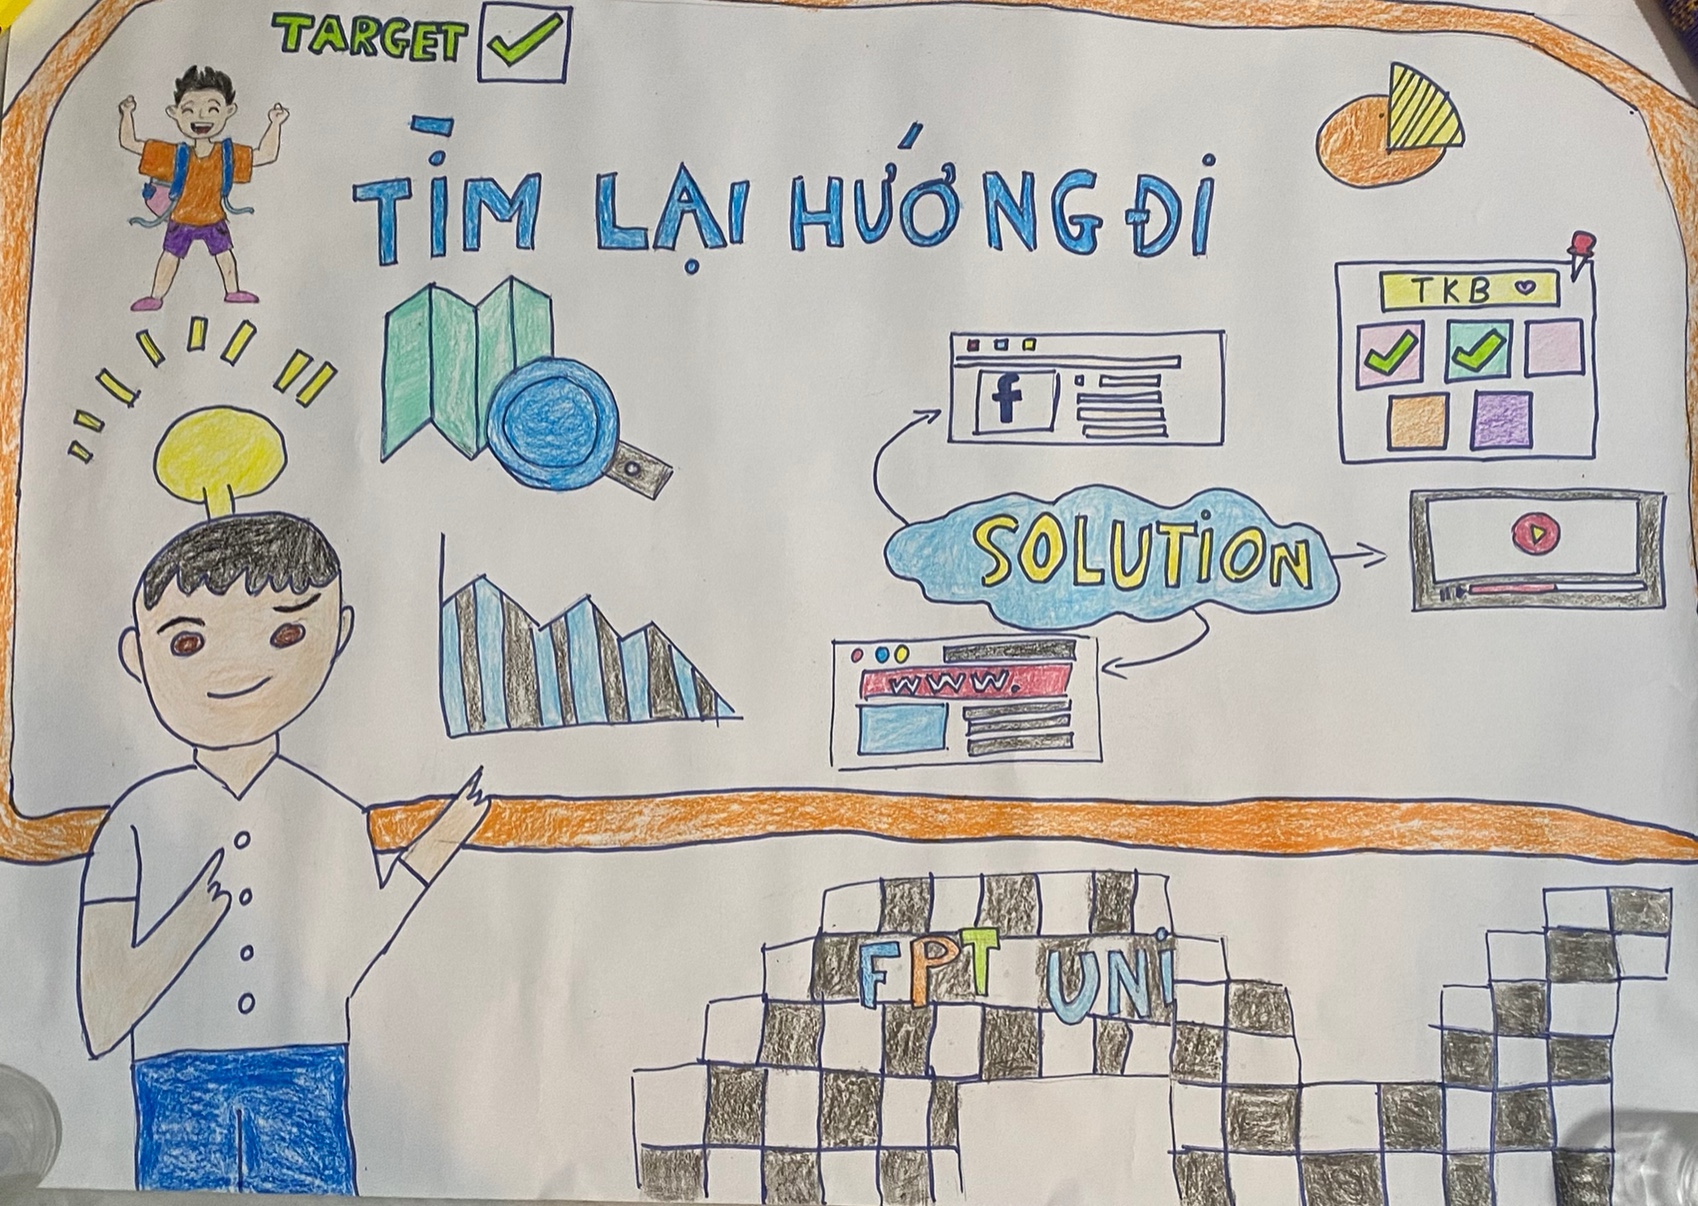 TARGET
TÌM LẠI HƯỚNG ĐI
TKB
f
SOLUTION
www.
FPT UNI